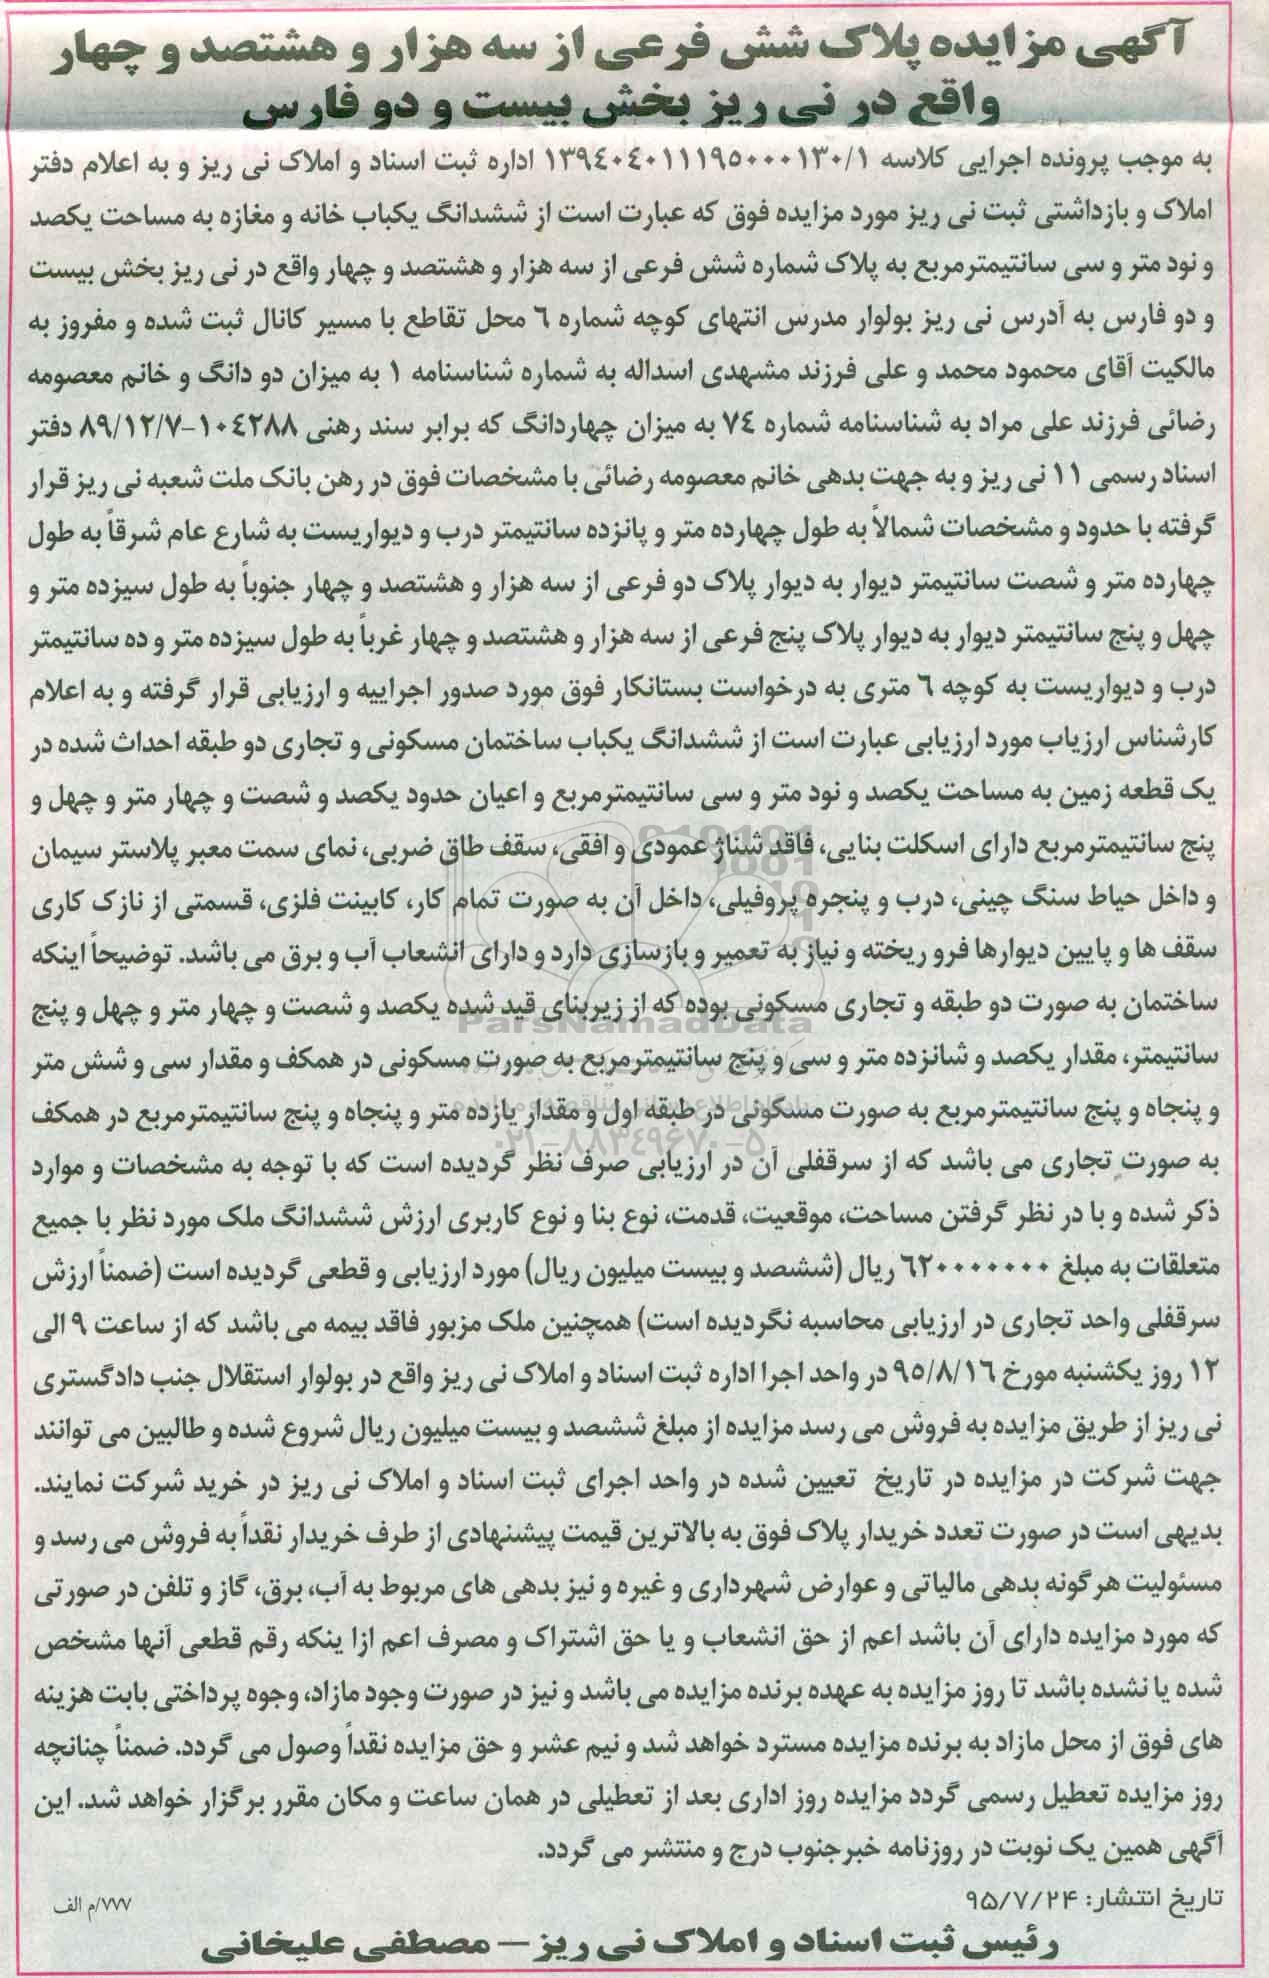 آگهی مزایده پلاک شش فرعی از سه هزار و هشتصد و چهار
واقع در نی ریز بخش بیست و دو فارس
به موجب پرونده اجرایی کلاسه ۱۳۹۴۰۴۰۱۱۱۹۵۰۰۰۱۳۰/۱ اداره ثبت اسناد و املاک نی ریز و به اعلام دفتر
املاک و بازداشتی ثبت نی ریز مورد مزایده فوق که عبارت است از ششدانگ یکباب خانه و مغازه به مساحت یکصد
و نود متر و سی سانتیمترمربع به پلاک شماره شش فرعی از سه هزار و هشتصد و چهار واقع در نی ریز بخش بیست
و دو فارس به آدرس نی ریز بولوار مدرس انتهای کوچه شماره ۶ محل تقاطع با مسیر کانال ثبت شده و مفروز به
مالکیت آقای محمود محمد و علی فرزند مشهدی اسداله به شماره شناسنامه ۱ به میزان دو دانگ و خانم معصومه
رضائی فرزند علی مراد به شناسنامه شماره ۷۴ به میزان چهاردانگ که برابر سند رهنی ۱۰۴۲۸۸-۸۹/۱۲/۷ دفتر
اسناد رسمی ۱۱ نی ریز و به جهت بدهی خانم معصومه رضائی با مشخصات فوق در رهن بانک ملت شعبه نی ریز قرار
گرفته با حدود و مشخصات شمالاً به طول چهارده متر و پانزده سانتیمتر درب و دیواریست به شارع عام شرقاً به طول
چهارده متر و شصت سانتیمتر دیوار به دیوار پلاک دو فرعی از سه هزار و هشتصد و چهار جنوباً به طول سیزده متر و
چهل و پنج سانتیمتر دیوار به دیوار پلاک پنج فرعی از سه هزار و هشتصد و چهار غرباً به طول سیزده متر و ده سانتیمتر
درب و دیواریست به کوچه ۶ متری به درخواست بستانکار فوق مورد صدور اجراییه و ارزیابی قرار گرفته و به اعلام
کارشناس ارزیاب مورد ارزیابی عبارت است از ششدانگ یکباب ساختمان مسکونی و تجاری دو طبقه احداث شده در
یک قطعه زمین به مساحت یکصد و نود متر و سی سانتیمترمربع و اعیان حدود یکصد و شصت و چهار متر و چهل و
پنج سانتیمترمربع دارای اسکلت بنایی، فاقد شناژ عمودی و افقی، سقف طاق ضربی، نمای سمت معبر پلاستر سیمان
و داخل حیاط سنگ چینی، درب و پنجره پروفیلی، داخل آن به صورت تمام کار، کابینت فلزی، قسمتی از نازک کاری
سقف ها و پایین دیوارها فرو ریخته و نیاز به تعمیر و بازسازی دارد و دارای انشعاب آب و برق می باشد. توضیحاً اینکه
ساختمان به صورت دو طبقه و تجاری مسکونی بوده که از زیربنای قید شده یکصد و شصت و چهار متر و چهل و پنج
سانتیمتر، مقدار یکصد و شانزده متر و سی و پنج سانتیمترمربع به صورت مسکونی در همکف و مقدار سی و شش متر
و پنجاه و پنج سانتیمترمربع به صورت مسکونی در طبقه اول و مقدار یازده متر و پنجاه و پنج سانتیمترمربع در همکف
به صورت تجاری می باشد که از سرقفلی آن در ارزیابی صرف نظر گردیده است که با توجه به مشخصات و موارد
ذکر شده و با در نظر گرفتن مساحت، موقعیت، قدمت، نوع بنا و نوع کاربری ارزش ششدانگ ملک مورد نظر با جمیع
متعلقات به مبلغ ۶۲۰۰۰۰۰۰۰ ریال (ششصد و بیست میلیون ریال) مورد ارزیابی و قطعی گردیده است (ضمناً ارزش
سرقفلی واحد تجاری در ارزیابی محاسبه نگردیده است) همچنین ملک مزبور فاقد بیمه می باشد که از ساعت ۹ الی
۱۲ روز یکشنبه مورخ ۹۵/۸/۱۶ در واحد اجرا اداره ثبت اسناد و املاک نی ریز واقع در بولوار استقلال جنب دادگستری
نی ریز از طریق مزایده به فروش می رسد مزایده از مبلغ ششصد و بیست میلیون ریال شروع شده و طالبین می توانند
جهت شرکت در مزایده در تاریخ تعیین شده در واحد اجرای ثبت اسناد و املاک نی ریز در خرید شرکت نمایند.
بدیهی است در صورت تعدد خریدار پلاک فوق به بالاترین قیمت پیشنهادی از طرف خریدار نقداً به فروش می رسد و
مسئولیت هرگونه بدهی مالیاتی و عوارض شهرداری و غیره و نیز بدهی های مربوط به آب، برق، گاز و تلفن در صورتی
که مورد مزایده دارای آن باشد اعم از حق انشعاب و یا حق اشتراک و مصرف اعم ازا ینکه رقم قطعی آنها مشخص
شده یا نشده باشد تا روز مزایده به عهده برنده مزایده می باشد و نیز در صورت وجود مازاد، وجوه پرداختی بابت هزینه
های فوق از محل مازاد به برنده مزایده مسترد خواهد شد و نیم عشر و حق مزایده نقداً وصول می گردد. ضمناً چنانچه
روز مزایده تعطیل رسمی گردد مزایده روز اداری بعد از تعطیلی در همان ساعت و مکان مقرر برگزار خواهد شد. این
آگهی همین یک نوبت در روزنامه خبرجنوب درج و منتشر می گردد.
تاریخ انتشار: ۹۵/۷/۲۴
۷۷۷/م الف
رئیس ثبت اسناد و املاک نی ریز – مصطفی علیخانی
ParsNamadData
۰۲۱-۸۸۳۴۹۶۷۰-۵